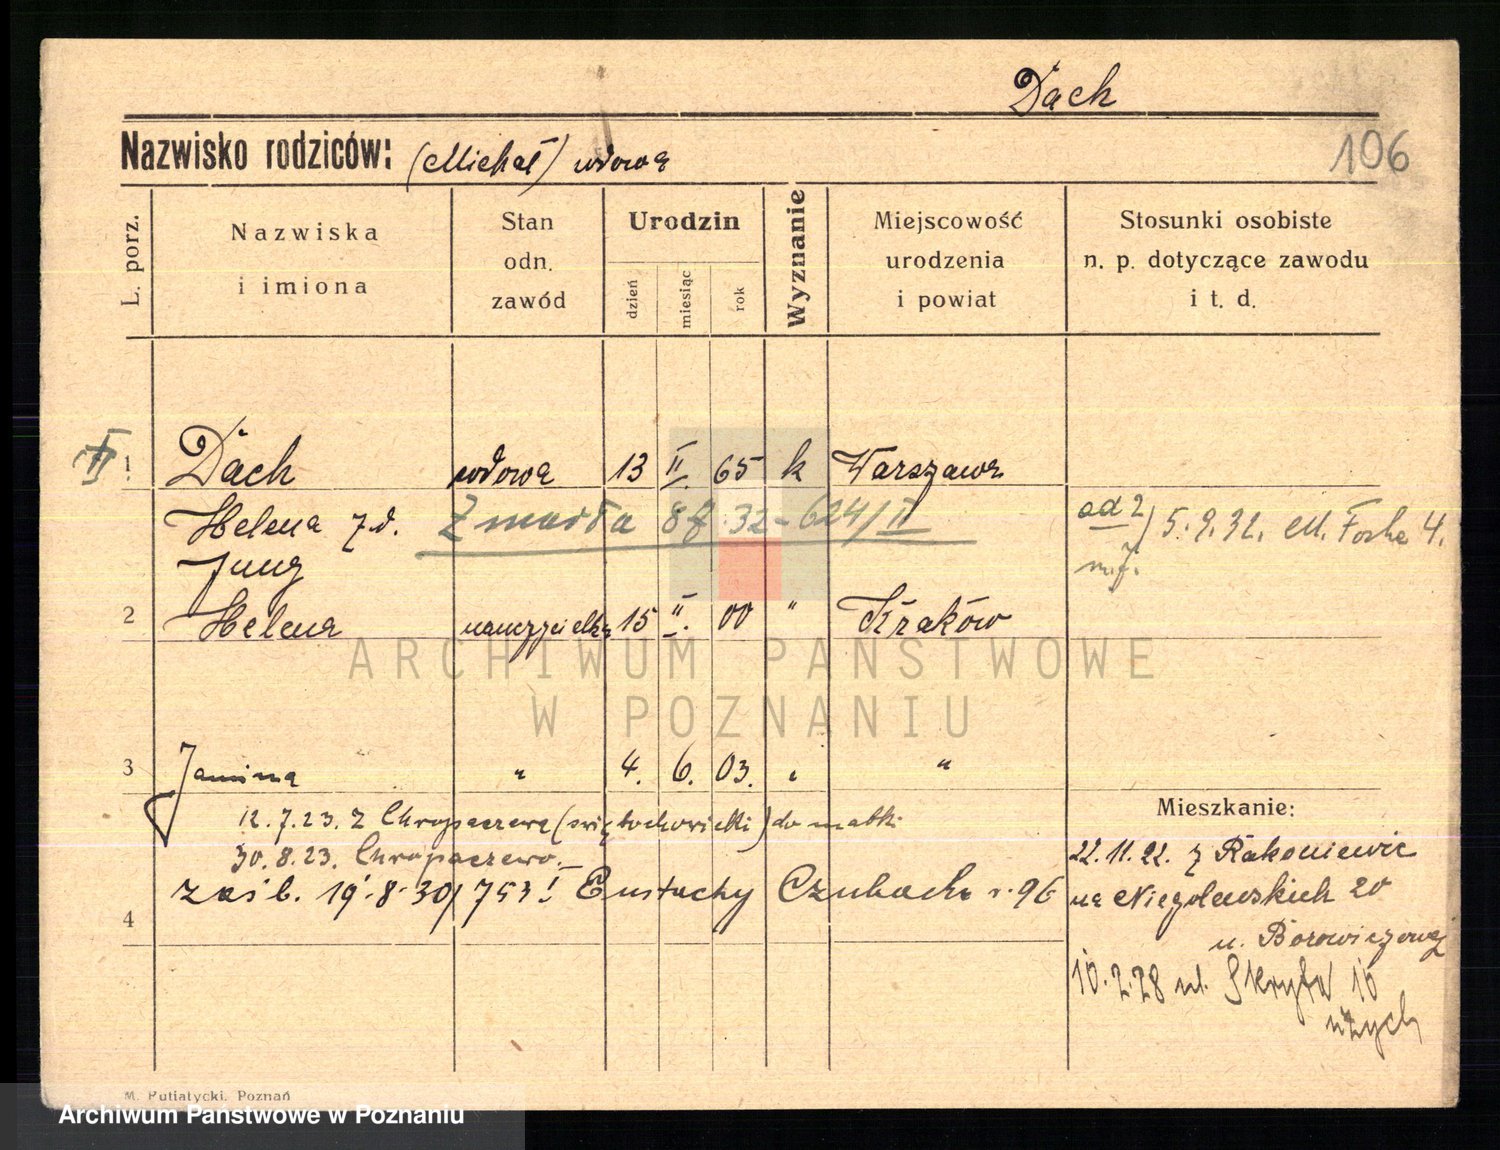 Dach
106
Nazwisko rodziców: (Michał) wdowa
L. porz.
Nazwiska
i imiona
Stan
odn.
zawód
Urodzin
dzień
miesiąc
rok
Wyznanie
Miejscowość
urodzenia
i powiat
Stosunki osobiste
n. p. dotyczące zawodu
i t. d.
1 Dach wdowa 13 II. 65 k Warszawa
Helena z d. Zmarła 32 - 624/II
od 2 / 5.9.32. M. Focha 4.
Jung
2 Helena nauczycielka 15 II. 00 " Kraków
ARCHIWUM PAŃSTWOWE
W POZNANIU
3 Janina " 4. 6. 03. " "
12.7.23. z Chropaczewa (świętochowicki) do matki
30.8.23. Chropaczewo.
zaśb. 19.8.30/753! Eustachy Czubacha
4
Mieszkanie:
22.11.22. z Rakoniewic
na Niegolewskich 20
u. Borowiczowej
10.2.28 ul. Skryta 10
M. Putiatycki, Poznań
Archiwum Państwowe w Poznaniu